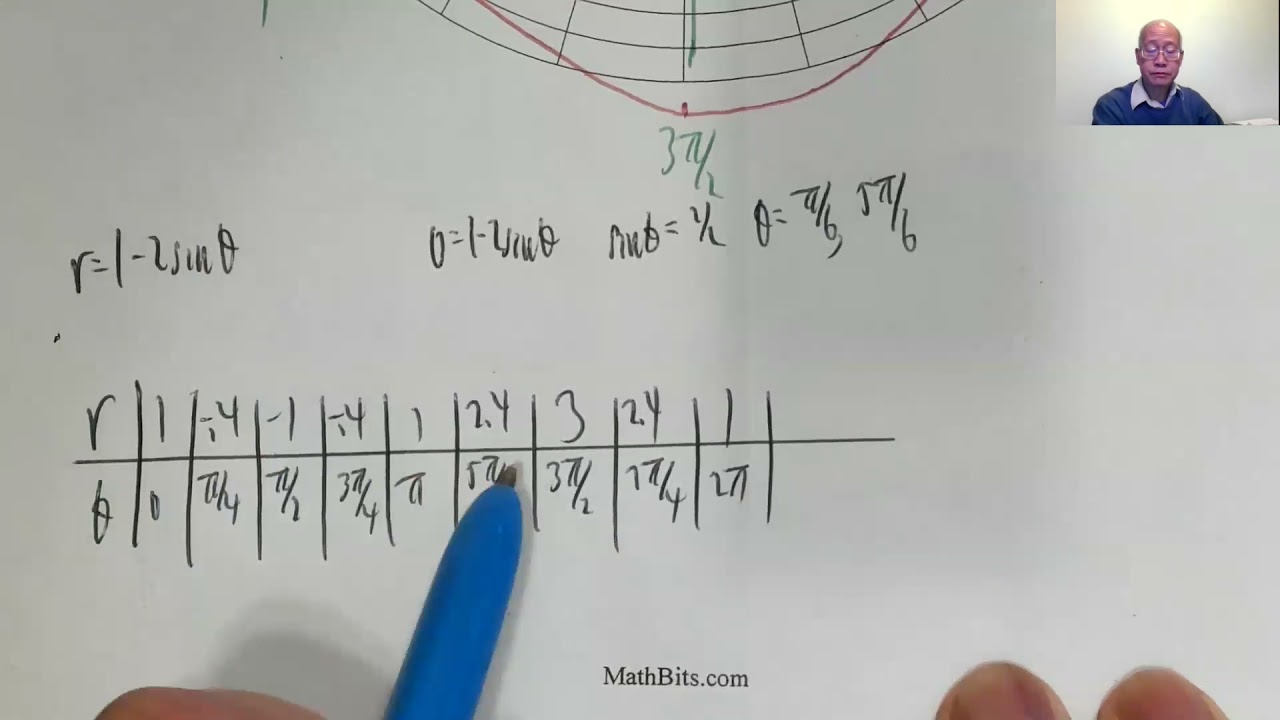 3π/2
r=1-2sinθ 0=1-2sinθ sinθ=1/2 θ=π/6, 5π/6
r 1 -.4 -1 -.4 1 2.4 3 2.4 1
θ 0 π/4 π/2 3π/4 π 5π 3π/2 7π/4 2π
MathBits.com